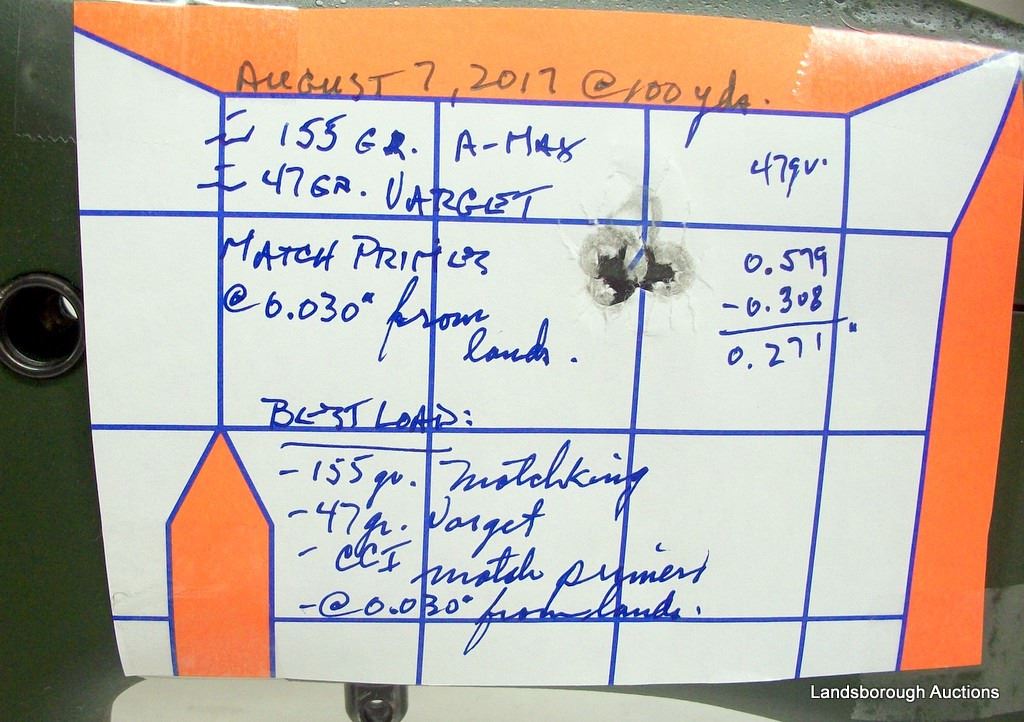 AUGUST 7, 2017 @ 100 yds.
155 GR. A-MAX
47 GR. VARGET
47gr.
MATCH PRIMERS
@ 0.030" from
lands.
0.579
-0.308
0.271"
BEST LOAD:
-155 gr. Matchking
-47 gr. Varget
- CCI match primers
-@ 0.030" from lands.
Landsborough Auctions